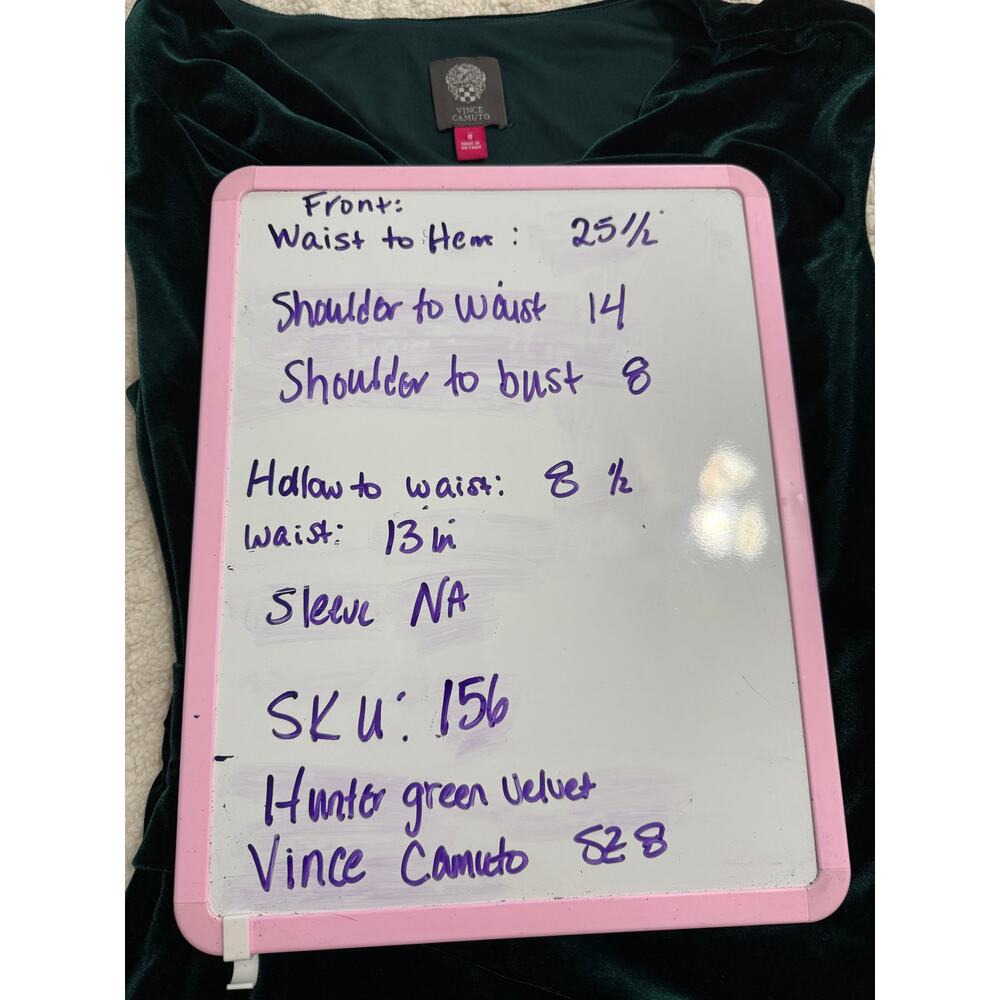 VINCE
CAMUTO
8
MADE IN
VIETNAM
Front:
Waist to Hem: 25 1/2
Shoulder to waist 14
Shoulder to bust 8
Hollow to waist: 8 1/2
Waist: 13 in
Sleeve NA
SKU: 156
Hunter green Velvet
Vince Camuto SZ 8